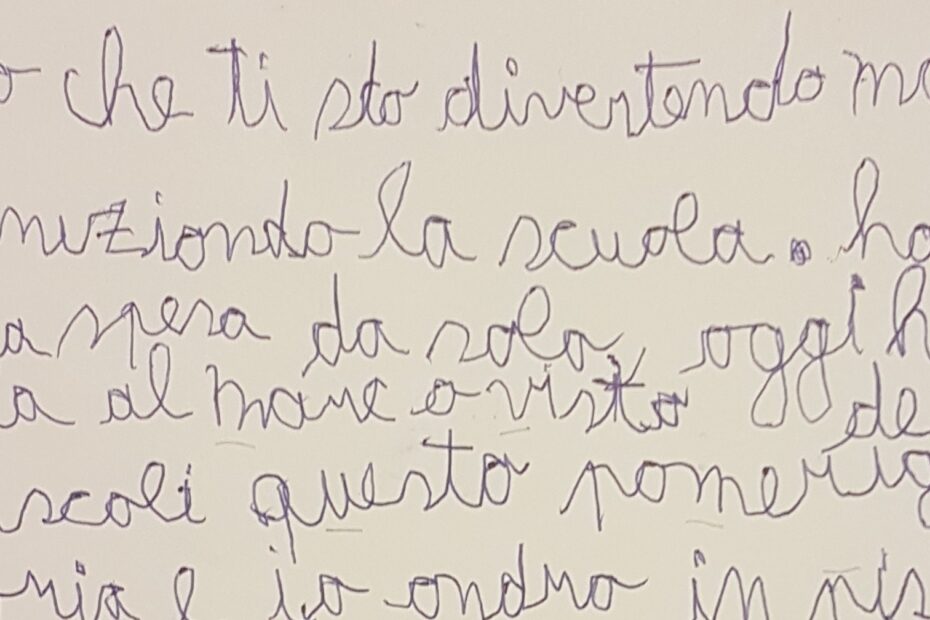 o che ti sto divertendo mo
niziondo la scuola. ho
a spesa da sola, oggi h
a al mare o visto de
scoli questo pomerig
ria e io ondro in pis